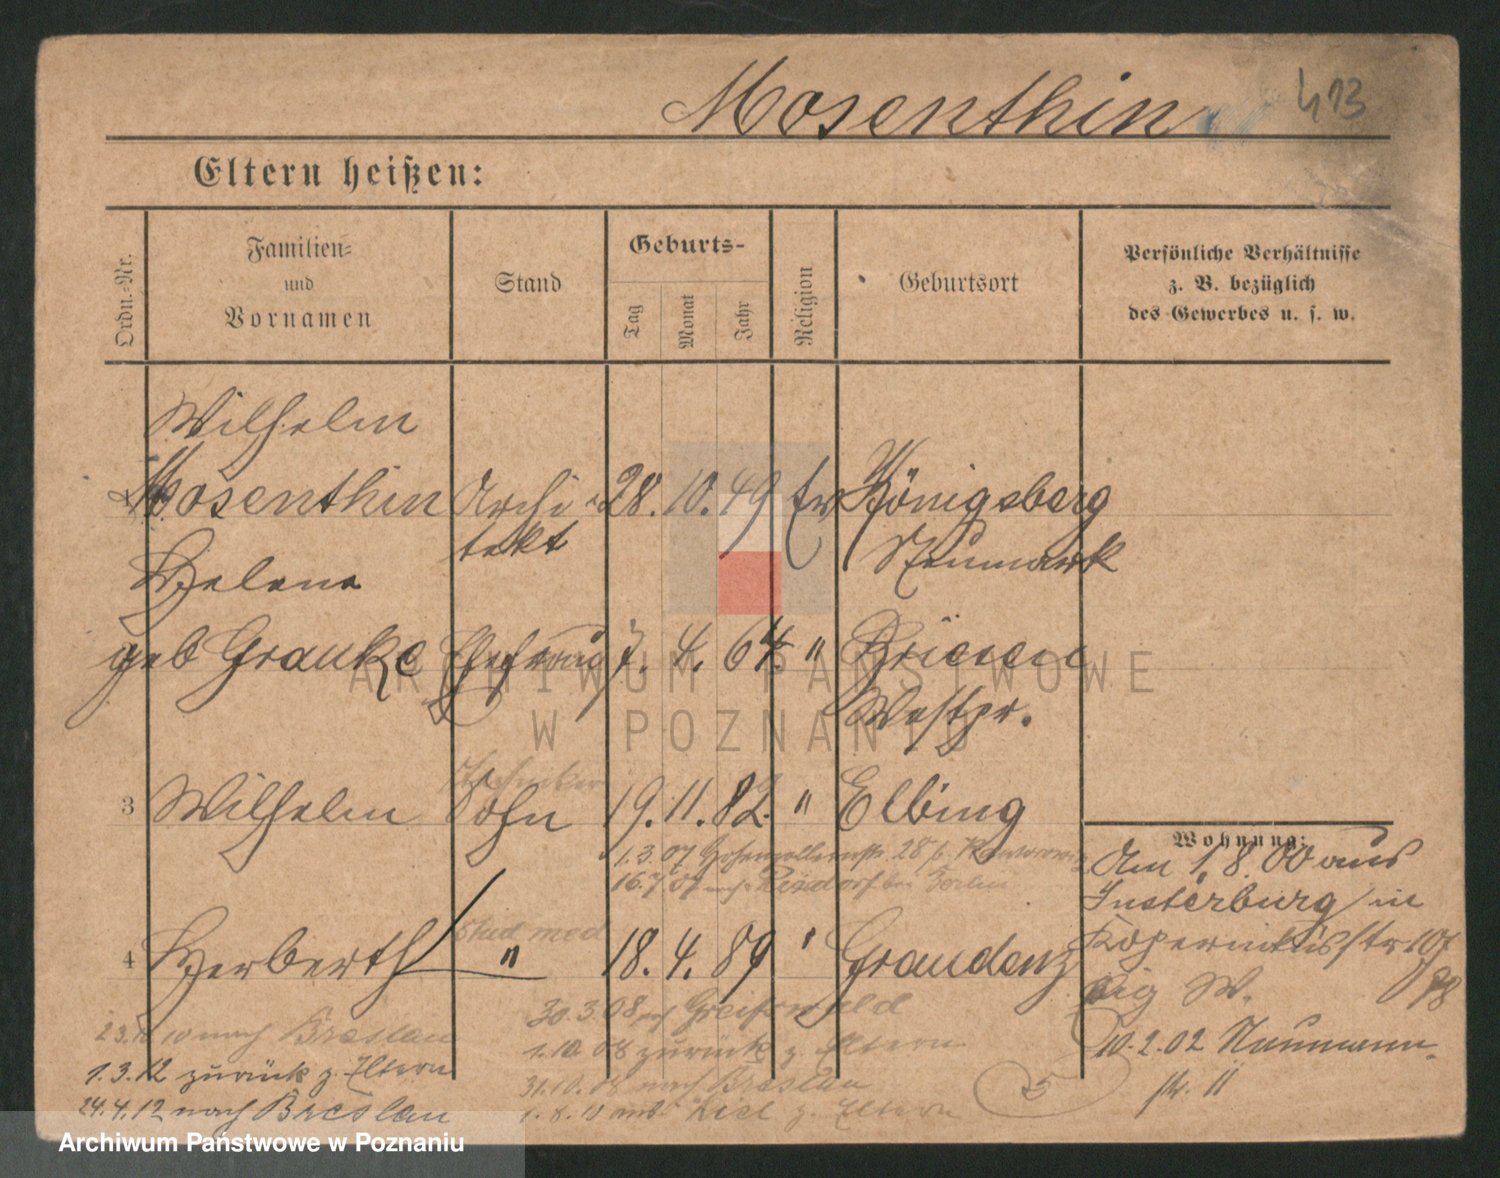 Mosenthin 413
Eltern heißen:
Ordn.-Nr.
Familien-
und
Vornamen
Stand
Geburts-
Tag
Monat
Jahr
Religion
Geburtsort
Persönliche Verhältnisse
z. B. bezüglich
des Gewerbes u. s. w.
Wilhelm
Mosenthin Archi- 28. 10. 49 Ev Königsberg
tekt Neumark
Helene
geb Granke Ehefrau 7. 4. 64 " Briesen
Westpr.
Techniker
3 Wilhelm Sohn 19. 11. 82. " Elbing
1.3.07 Hohenzollernstr. 28 b.
16.7.07 nach Rixdorf bei Berlin
Stud med
4 Herberth " 18. 4. 89 " Graudenz
30.3.08 nach Greifswald
1.10.08 zurück z. Eltern
31.10.08 nach Breslau
1.8.10 aus Kiel z. Eltern
10 nach Breslau
1.3.12 zurück z. Eltern
24.4.12 nach Breslau
Wohnung:
Am 1.8.00 aus
Insterburg in
Kopernikusstr 10
W.
10.2.02 Naumann-
str. 11
5
ARCHIWUM PAŃSTWOWE
W POZNANIU
Archiwum Państwowe w Poznaniu